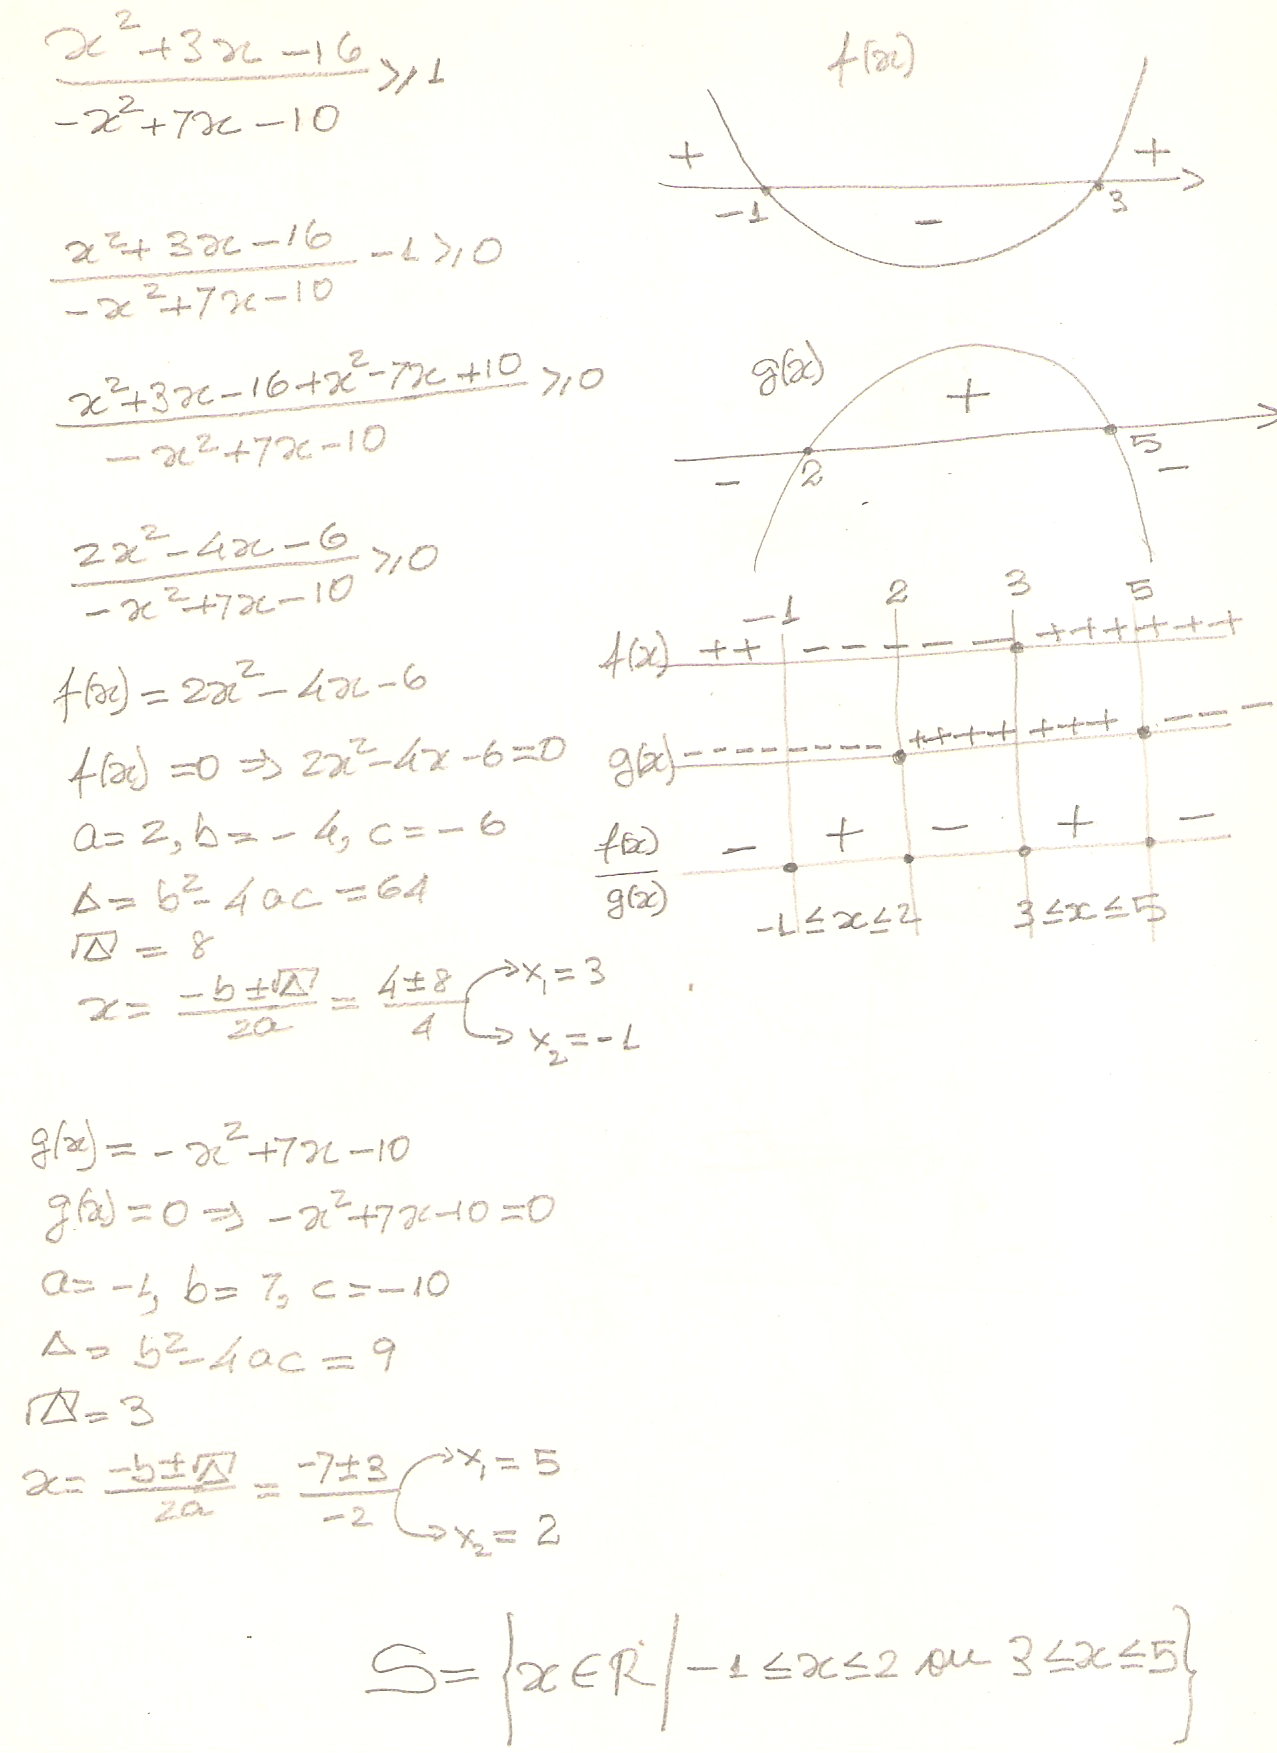 x²+3x-16 / -x²+7x-10 ≥ 1
x²+3x-16 / -x²+7x-10 - 1 ≥ 0
x²+3x-16+x²-7x+10 / -x²+7x-10 ≥ 0
2x²-4x-6 / -x²+7x-10 ≥ 0
f(x) = 2x²-4x-6
f(x) = 0 ⇒ 2x²-4x-6=0
a=2, b=-4, c=-6
Δ = b²-4ac = 64
√Δ = 8
x = -b±√Δ / 2a = 4±8 / 4
x₁=3
x₂=-1
g(x) = -x²+7x-10
g(x) = 0 ⇒ -x²+7x-10=0
a=-1, b=7, c=-10
Δ = b²-4ac = 9
√Δ = 3
x = -b±√Δ / 2a = -7±3 / -2
x₁=5
x₂=2
f(x)
+ - +
-1 3
g(x)
- + -
2 5
-1 2 3 5
f(x) ++ ---- - ++++++
g(x) --------- ++++ +++ ----
f(x)/g(x) - + - + -
-1≤x≤2 3≤x≤5
S={x∈R/-1≤x≤2 ou 3≤x≤5}